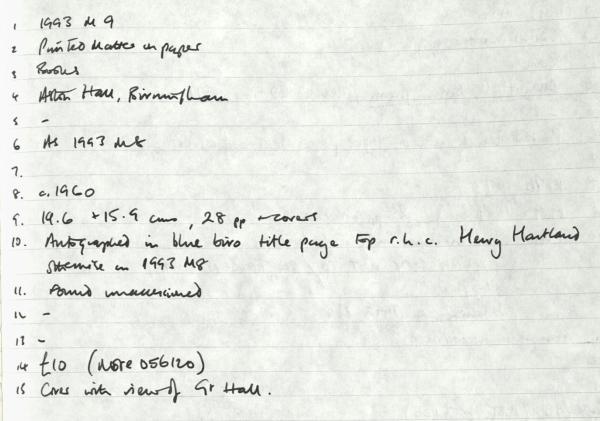 1 1993 M 9
2 Printed Matter on paper
3 Books
4 Aston Hall, Birmingham
5 -
6 As 1993 M8
7.
8. c. 1960
9. 19.6 x 15.9 cms, 28 pp + covers
10. Autographed in blue biro title page top r.h.c. Henry Hartland
otherwise as 1993 M8
11. Found unaccessioned
12 -
13 -
14 £10 (Note 056120)
15 Cover with view of Gt Hall.